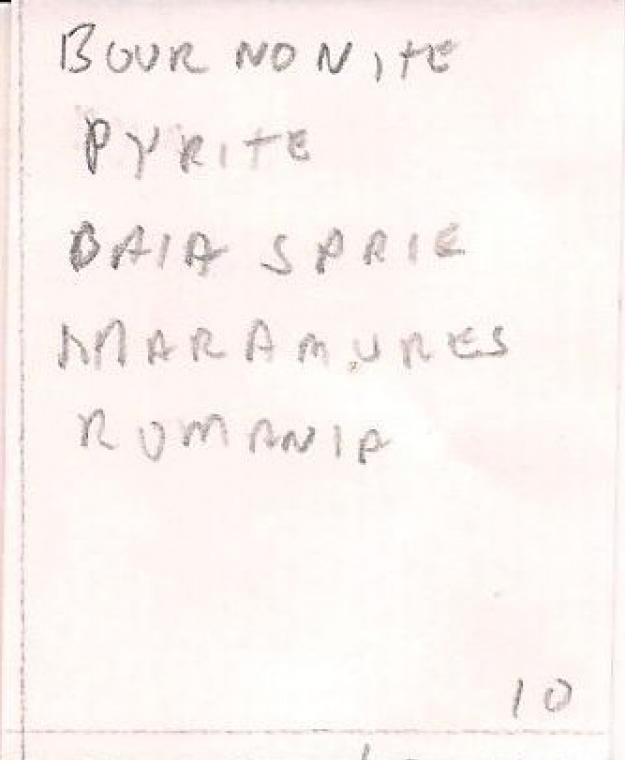 BOURNONITE
PYRITE
BAIA SPRIE
MARAMURES
RUMANIA
10